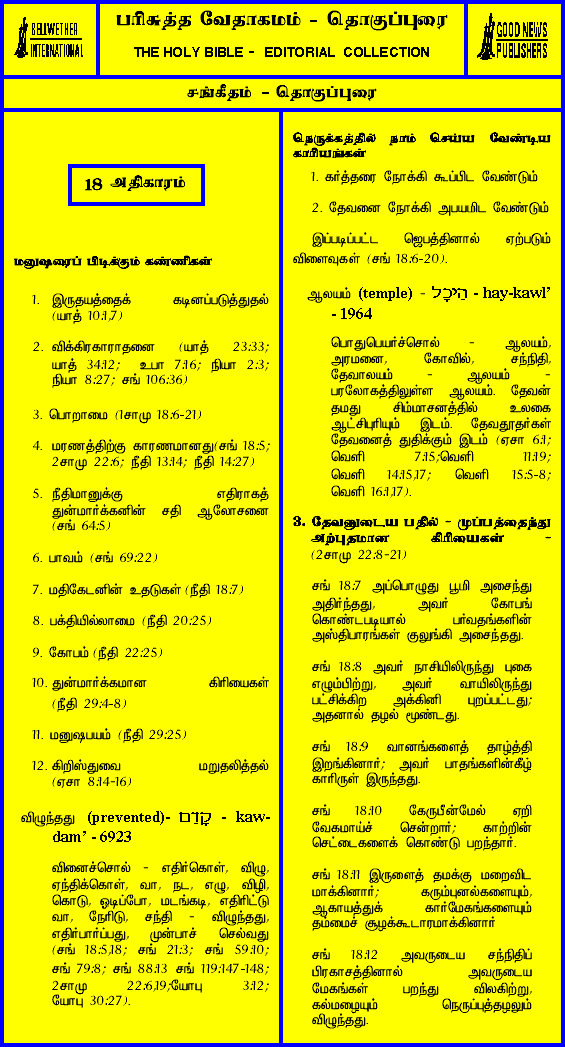 BELLWETHER
INTERNATIONAL
பரிசுத்த வேதாகமம் - தொகுப்புரை
THE HOLY BIBLE - EDITORIAL COLLECTION
GOOD NEWS
PUBLISHERS
சங்கீதம் - தொகுப்புரை
18 அதிகாரம்
மனுஷரைப் பிடிக்கும் கண்ணிகள்
1. இருதயத்தைக் கடினப்படுத்துதல்
(யாத் 10:1,7)
2. விக்கிரகாராதனை (யாத் 23:33;
யாத் 34:12; உபா 7:16; நியா 2:3;
நியா 8:27; சங் 106:36)
3. பொறாமை (1சாமு 18:6-21)
4. மரணத்திற்கு காரணமானது(சங் 18:5;
2சாமு 22:6; நீதி 13:14; நீதி 14:27)
5. நீதிமானுக்கு எதிராகத்
துன்மார்க்கனின் சதி ஆலோசனை
(சங் 64:5)
6. பாவம் (சங் 69:22)
7. மதிகேடனின் உதடுகள் (நீதி 18:7)
8. பக்தியில்லாமை (நீதி 20:25)
9. கோபம் (நீதி 22:25)
10. துன்மார்க்கமான கிரியைகள்
(நீதி 29:4-8)
11. மனுஷபயம் (நீதி 29:25)
12. கிறிஸ்துவை மறுதலித்தல்
(ஏசா 8:14-16)
விழுந்தது (prevented)- קָדַם - kaw-
dam' - 6923
வினைச்சொல் - எதிர்கொள், விழு,
ஏந்திக்கொள், வா, நட, எழு, விழி,
கொடு, ஓடிப்போ, மடங்கடி, எதிரிட்டு
வா, நேரிடு, சந்தி - விழுந்தது,
எதிர்பார்ப்பது, முன்பாச் செல்வது
(சங் 18:5,18; சங் 21:3; சங் 59:10;
சங் 79:8; சங் 88:13 சங் 119:147-148;
2சாமு 22:6,19;யோபு 3:12;
யோபு 30:27).
நெருக்கத்தில் நாம் செய்ய வேண்டிய
காரியங்கள்
1. கர்த்தரை நோக்கி கூப்பிட வேண்டும்
2. தேவனை நோக்கி அபயமிட வேண்டும்
இப்படிப்பட்ட ஜெபத்தினால் ஏற்படும்
விளைவுகள் (சங் 18:6-20).
ஆலயம் (temple) - הֵיכָל - hay-kawl'
- 1964
பொதுபெயர்ச்சொல் - ஆலயம்,
அரமனை, கோவில், சந்நிதி,
தேவாலயம் - ஆலயம் -
பரலோகத்திலுள்ள ஆலயம். தேவன்
தமது சிம்மாசனத்தில் உலகை
ஆட்சிபுரியும் இடம். தேவதூதர்கள்
தேவனைத் துதிக்கும் இடம் (ஏசா 6:1;
வெளி 7:15;வெளி 11:19;
வெளி 14:15,17; வெளி 15:5-8;
வெளி 16:1,17).
3. தேவனுடைய பதில் - முப்பத்தைந்து
அற்புதமான கிரியைகள் -
(2சாமு 22:8-21)
சங் 18:7 அப்பொழுது பூமி அசைந்து
அதிர்ந்தது, அவர் கோபங்
கொண்டபடியால் பர்வதங்களின்
அஸ்திபாரங்கள் குலுங்கி அசைந்தது.
சங் 18:8 அவர் நாசியிலிருந்து புகை
எழும்பிற்று, அவர் வாயிலிருந்து
பட்சிக்கிற அக்கினி புறப்பட்டது;
அதனால் தழல் மூண்டது.
சங் 18:9 வானங்களைத் தாழ்த்தி
இறங்கினார்; அவர் பாதங்களின்கீழ்
காரிருள் இருந்தது.
சங் 18:10 கேருபீன்மேல் ஏறி
வேகமாய்ச் சென்றார்; காற்றின்
செட்டைகளைக் கொண்டு பறந்தார்.
சங் 18:11 இருளைத் தமக்கு மறைவிட
மாக்கினார்; கரும்புனல்களையும்,
ஆகாயத்துக் கார்மேகங்களையும்
தம்மைச் சூழக்கூடாரமாக்கினார்
சங் 18:12 அவருடைய சந்நிதிப்
பிரகாசத்தினால் அவருடைய
மேகங்கள் பறந்து விலகிற்று,
கல்மழையும் நெருப்புத்தழலும்
விழுந்தது.